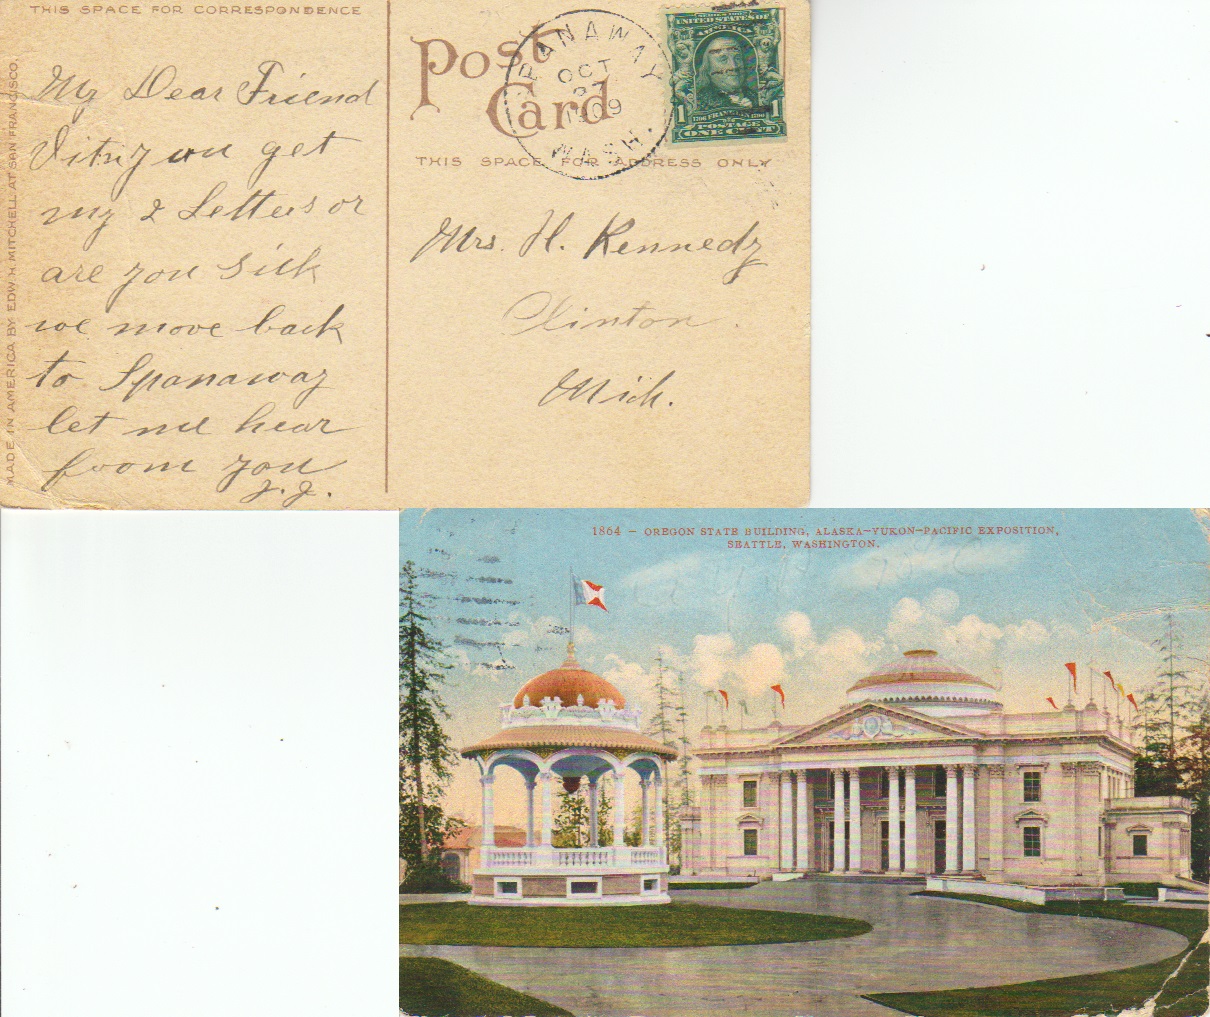 THIS SPACE FOR CORRESPONDENCE
MADE IN AMERICA BY EDW. H. MITCHELL, AT SAN FRANCISCO.
My Dear Friend
you get
my 2 Letters or
are you sick
we move back
to Spanaway
let me hear
from you
J. J.
Post
Card
THIS SPACE FOR ADDRESS ONLY
PANAWAY
OCT
27
1909
WASH.
SERIES 1902
UNITED STATES OF
AMERICA
1 1706 FRANKLIN 1790 1
POSTAGE
ONE CENT
Mrs. H. Kennedy
Clinton.
Mich.
1864 – OREGON STATE BUILDING, ALASKA–YUKON–PACIFIC EXPOSITION,
SEATTLE, WASHINGTON.